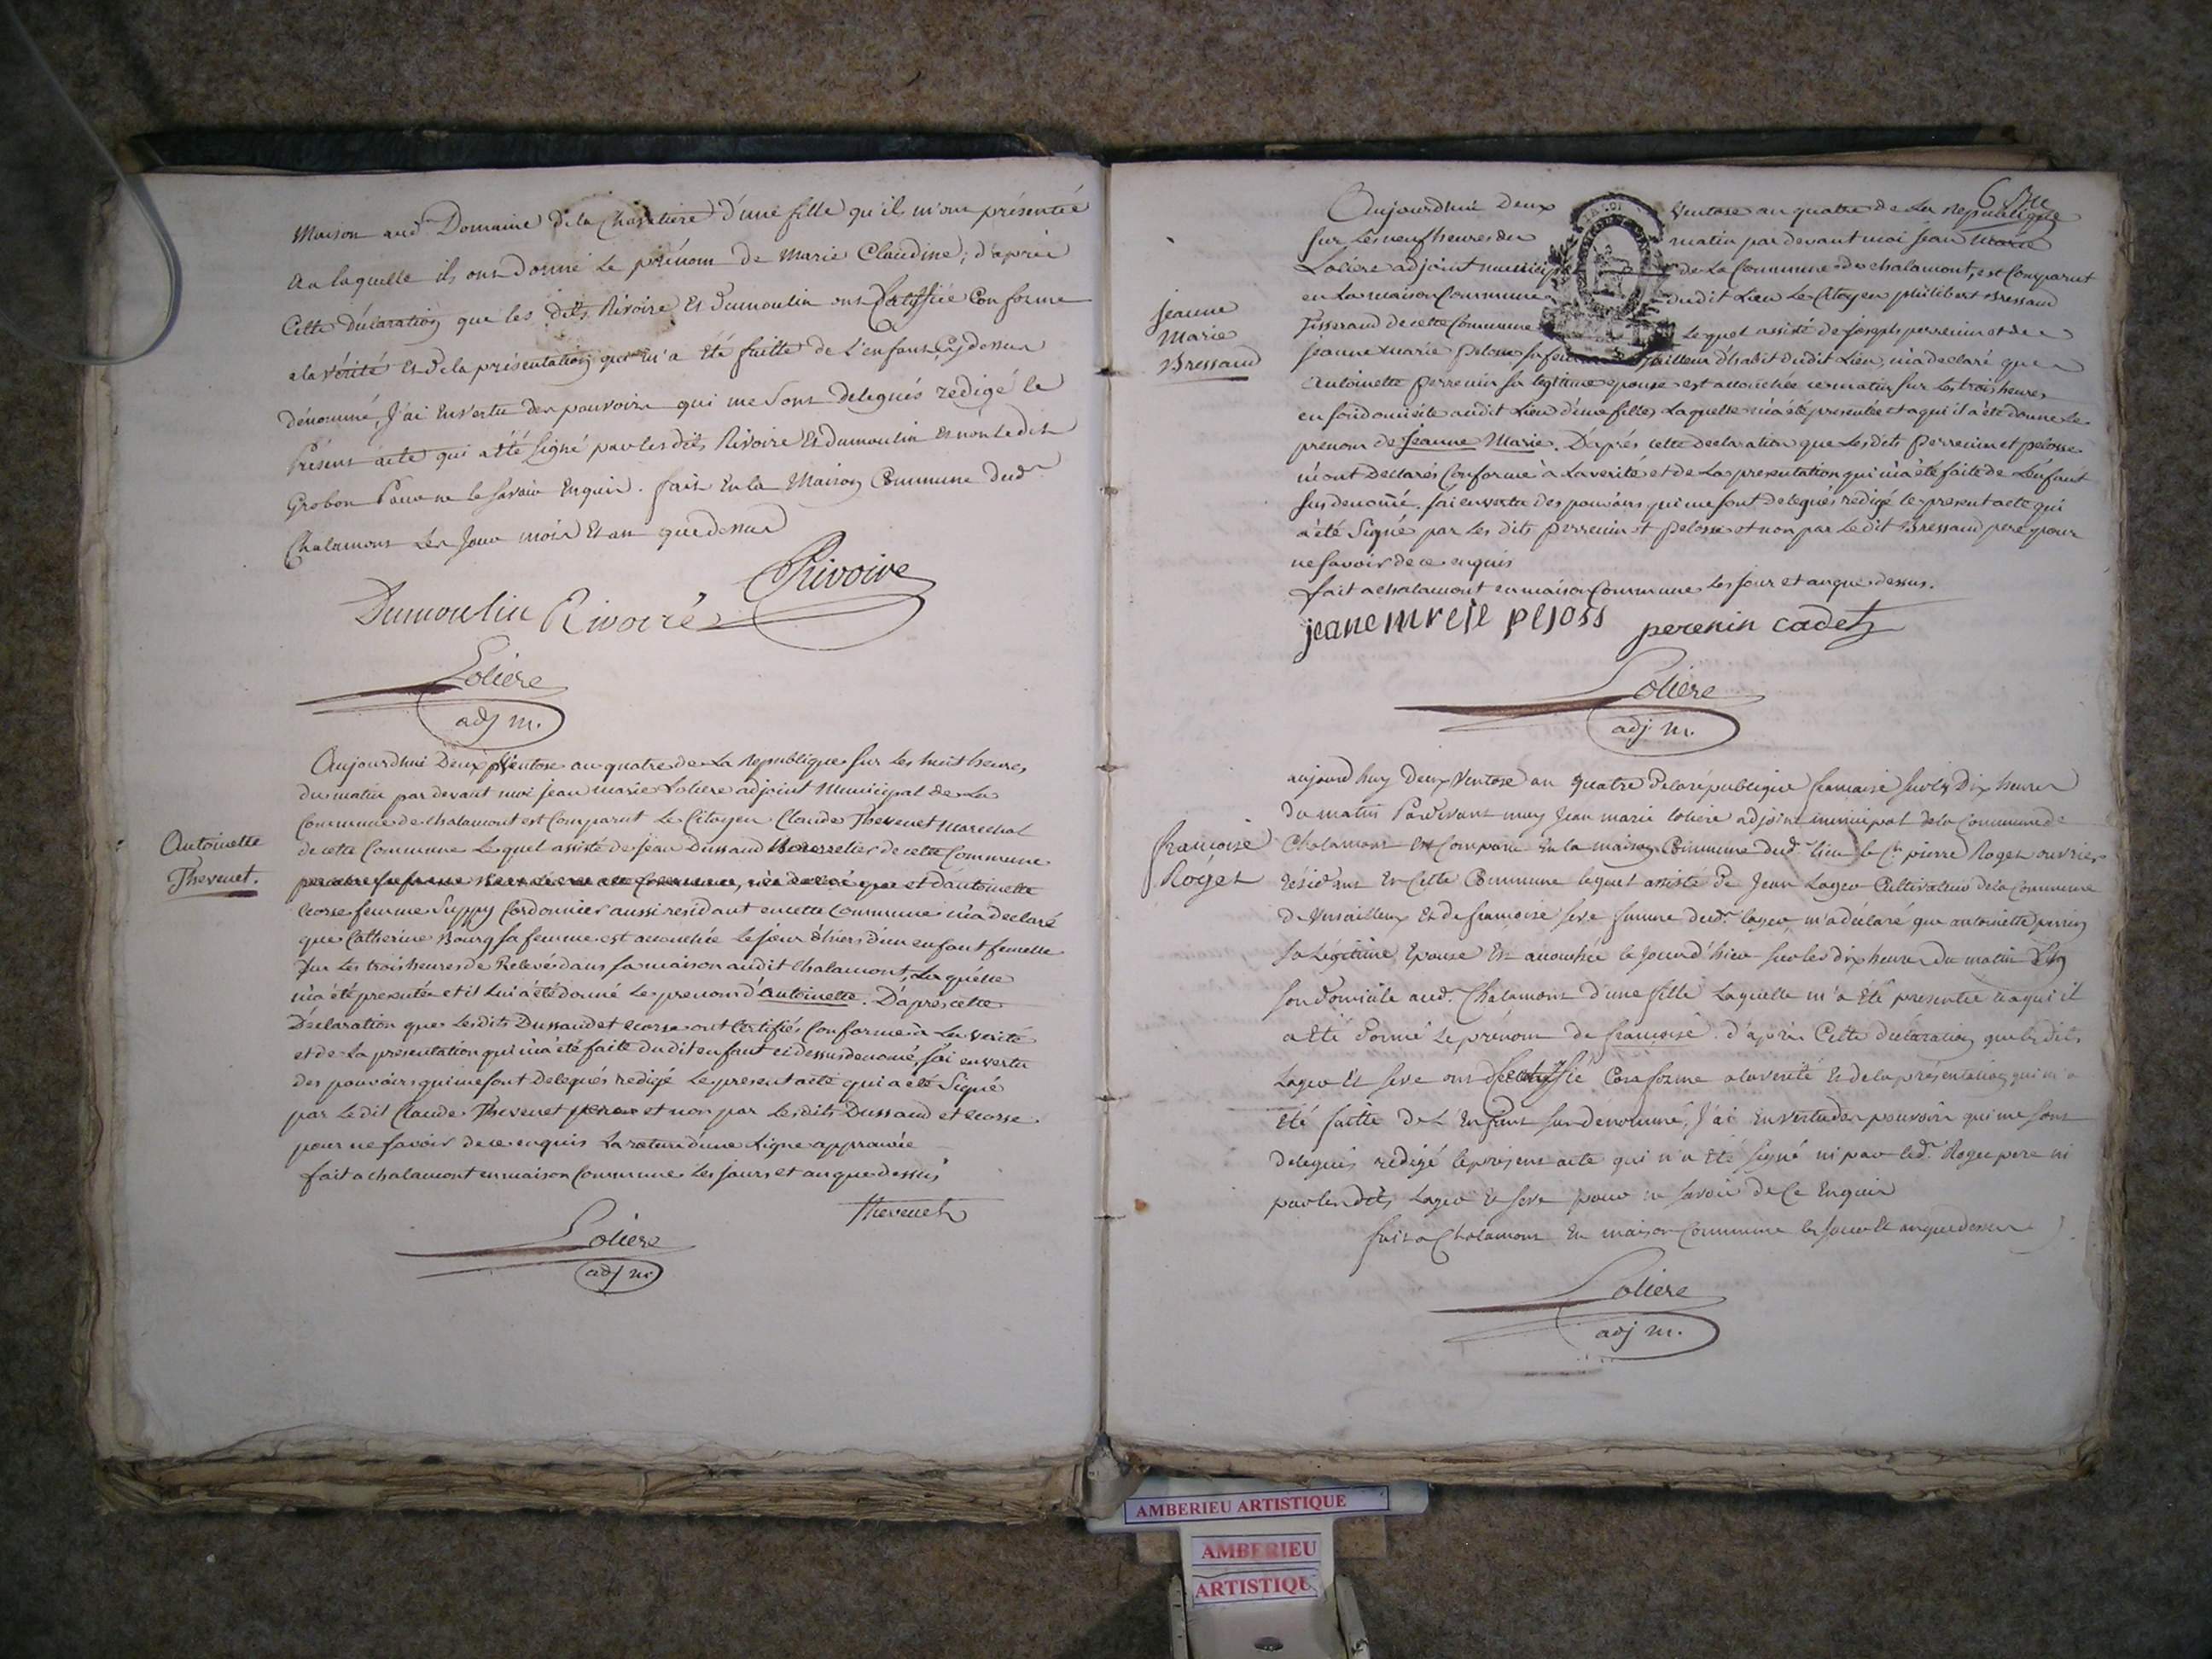 Maison aud. Domaine de la Charetiere d'une fille qu'ils m'ont présentée
a laquelle ils ont donné le prénom de Marie Claudine; d'après
Cette déclaration que les dits Rivoire et Dumoulin ont Certiffiée Conforme
a la vérité et de la présentation qui m'a été faitte de l'enfant cy dessus
dénommé, J'ai en vertu des pouvoirs qui me sont delegués redigé le
Présent acte qui a été signé par les dits Rivoire et Dumoulin et non le dit
Grobon Pour ne le savoir enquis. fait en la Maison Commune dud.
Chalamont les Jour mois et an que dessus
Rivoire
Dumoulin Rivoire
Loliere
adj m.
Aujourdhui Deux Ventose an quatre de La Republique sur les huit heures
du matin par devant moi jean marie Loliere adjoint Municipal de La
Commune de chalamont est Comparut Le Citoyen Claude Thevenet Marechal
de cette Commune Lequel assisté de jean Dussaud Bourrelier de cette Commune
et d'antoinette
Ecorse femme Suppy Cordonnier aussi residant en cette Commune m'a declaré
que Catherine Bourg sa femme est accouchée le jour d'hiers d'un enfant femelle
sur Les trois heures de Relevés dans sa maison audit Chalamont, La quelle
m'a été presentée et il Lui a été donné Le prenom d'antoinette. D'apres cette
Déclaration que Lesdits Dussaud et ecorse ont Certifiés Conforme à La verité
et de La presentation qui m'a été faite du dit enfant ci dessus denomé, j'ai en vertu
des pouvoirs qui me sont Delegués redigé Le present acte qui a été Signé
par Le dit Claude Thevenet pere et non par Lesdits Dussaud et ecorse
pour ne savoir de ce enquis La rature d'une Ligne approuvée
fait a chalamont en maison Commune Les jours et an que dessus
Thevenet
Loliere
adj m
Antoinette
Thevenet.
Aujourdhui Deux Ventose an quatre de La Republique
sur Les neuf heures du matin par devant moi jean Marie
Loliere adjoint municip de La Commune de chalamont, est Comparut
en La maison Commune dudit Lieu Le Citoyen philibert Bressaud
Tisserand de cette Commune Lequel assisté de joseph perrenin et de
jeanne marie pelosse sa fem tailleur d'habit dudit Lieu, m'a declaré que
Antoinette perrenin sa legitime epouse est accouchée ce matin sur Les trois heures
en son domicile audit Lieu d'une fille, Laquelle m'a été presentée et a qui il a été donné Le
prenom de Jeanne Marie. D'aprés cette declaration que Les dits Perrenin et pelosse
m'ont Declarés Conforme à La verité et de La presentation qui m'a été faite de L'enfant
sus denomé, j'ai en vertu des pouvoirs qui me sont delegués redigé le present acte qui
a été Signé par Les dits perrenin et pelosse et non par Le dit Bressaud pere pour
ne savoir de ce enquis
fait a chalamont en maison Commune Les jour et an que dessus.
perenin cadet
Loliere
adj. m.
jeanne
Marie
Bressaud
aujourd huy Deux Ventose an quatre De la république francaise sur les Dix heures
du matin Pardevant moy Jean marie loliere adjoint municipal de la Commune de
Chalamont est Comparu En la maison Commune dud. lieu le C.n pierre Roget ouvrier
résidant En Cette Commune lequel assisté De Jean Lager Cultivateur de la Commune
de Versailleux Et de francoise seve femme dud. lager m'a déclaré que antoinette perrin
sa Légitime Epouse Est accouchée le Jour d'hier sur les dix heures Du matin En
son domicile aud. Chalamont d'une fille Laquelle m'a été presentée et a qui il
a été Donné Le prénom de francoise. d'après Cette déclaration que les dits
Lager Et seve ont Certiffié Conforme a la verité Et de la présentation qui m'a
été faitte De L'Enfant sus denommé, J'ai En vertu des pouvoirs qui me sont
delegués redigé le présent acte qui n'a été signé ni par led. Roget pere ni
par les dits Lager et seve pour ne savoir de Ce Enquis
fait a Chalamont En maison Commune les Jour Et an que dessus
Loliere
adj m.
francoise
Roget
AMBERIEU ARTISTIQUE
AMBERIEU
ARTISTIQU